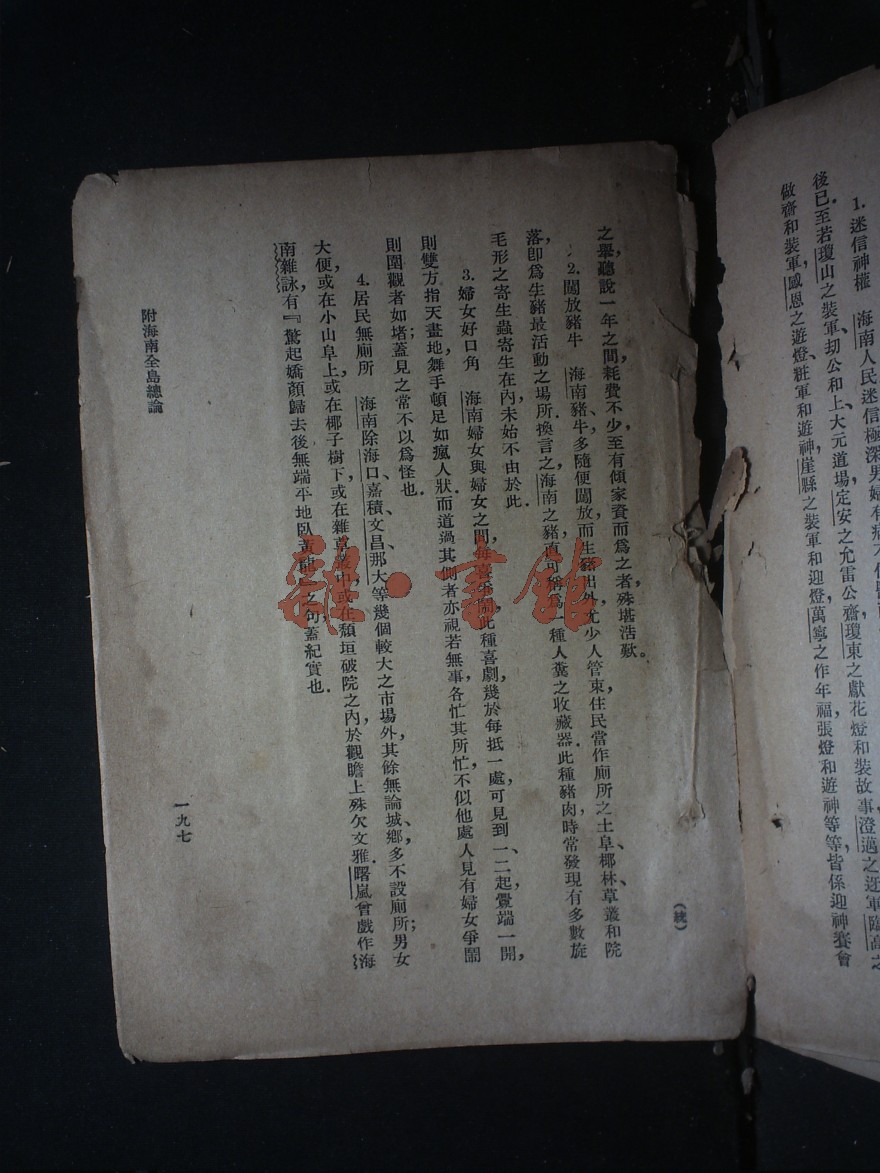 1. 迷信神權　海南人民迷信極深男婦有病不
後已至若瓊山之裝軍刧公和上大元道場、定安之允雷公齋瓊東之獻花燈和裝故事澄邁之迓軍臨高之
做齋和裝軍、感恩之遊燈、粧軍和遊神、崖縣之裝軍和迎燈萬寧之作年福、張燈和遊神等等、皆係迎神賽會
之舉、聽說一年之間、耗費不少、至有傾家資而爲之者、殊堪浩歎。
2. 闢放豬牛　海南豬牛、多隨便闢放、而生豬出外、尤少人管束、住民當作廁所之土阜、椰林、草叢和院
落、卽爲生豬最活動之場所、換言之、海南之豬直可稱爲一種人糞之收藏器、此種豬肉時常發現有多數旋
毛形之寄生蟲寄生在內、未始不由於此.
3. 婦女好口角　海南婦女與婦女之間、每喜爭鬧、此種喜劇、幾於每抵一處、可見到一、二起、釁端一開、
則雙方指天畫地、舞手頓足如瘋人狀、而道過其側者亦視若無事、各忙其所忙、不似他處人見有婦女爭鬧
則圍觀者如堵、蓋見之常不以爲怪也.
4. 居民無廁所　海南除海口、嘉積、文昌、那大等幾個較大之市場外、其餘無論城、鄉、多不設廁所；男女
大便、或在小山阜上、或在椰子樹下、或在雜草叢中、或在頹垣破院之內、於觀瞻上殊欠文雅、曙嵐曾戲作海
南雜詠、有『驚起嬌顏歸去後、無端平地臥黃之句、蓋紀實也.
附海南全島總論
一九七
雜·書館